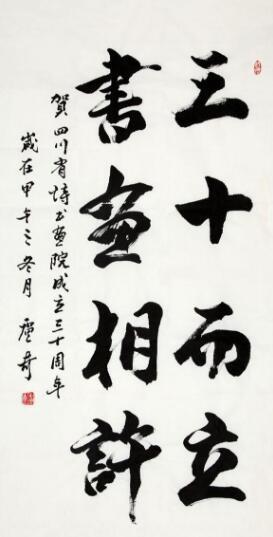 三十而立
書畫相許
賀四川省诗书画院成立三十周年
歲在甲午之冬月